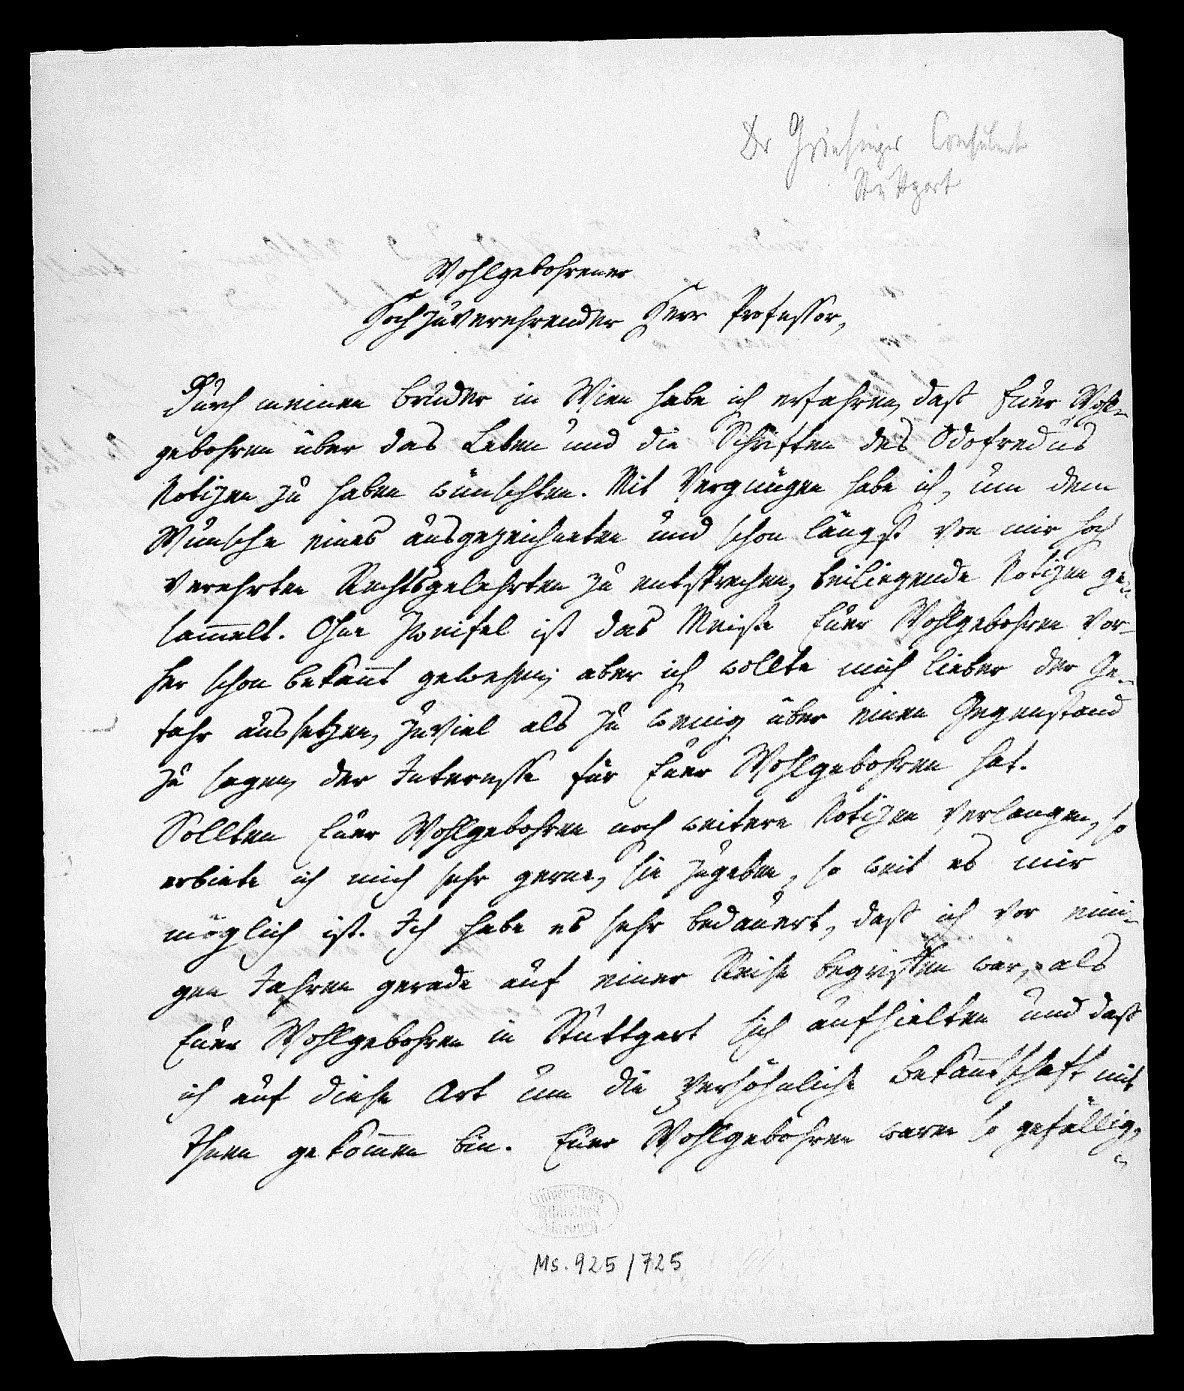 Dr Griesinger Consulent
Stuttgart
Wohlgebohrener
Hochzuverehrender Herr Professor,
Durch meinen Bruder in Wien habe ich erfahren, daß Euer Wohl-
gebohren über das Leben und die Schriften des Odofredus
Notizen zu haben wünschten. Mit Vergnügen habe ich, um dem
Wunsche eines ausgezeichneten und schon längst von mir hoch
verehrten Rechtsgelehrten zu entsprechen, beiliegende Notizen ge-
sam̅elt. Ohne Zweifel ist das Meiste Euer Wohlgebohren vor-
her schon bekan̅t gewesen; aber ich wollte mich lieber der Ge-
fahr aussetzen, zuviel als zu wenig über einen Gegenstand
zu sagen, der Interesse für Euer Wohlgebohren hat.
Sollten Euer Wohlgebohren noch weitere Notizen verlangen, so
erbiete ich mich sehr gerne, sie zugeben, so weit es mir
möglich ist. Ich habe es sehr bedauert, daß ich vor eini-
gen Jahren gerade auf einer Reise begriffen war, als
Euer Wohlgebohren in Stuttgart sich aufhielten und daß
ich auf diese Art um die persöhnliche Bekan̅tschaft mit
Ihnen gekom̅en bin. Euer Wohlgebohren waren so gefällig,
Universitäts
Bibliothek
Marburg
Ms. 925/725